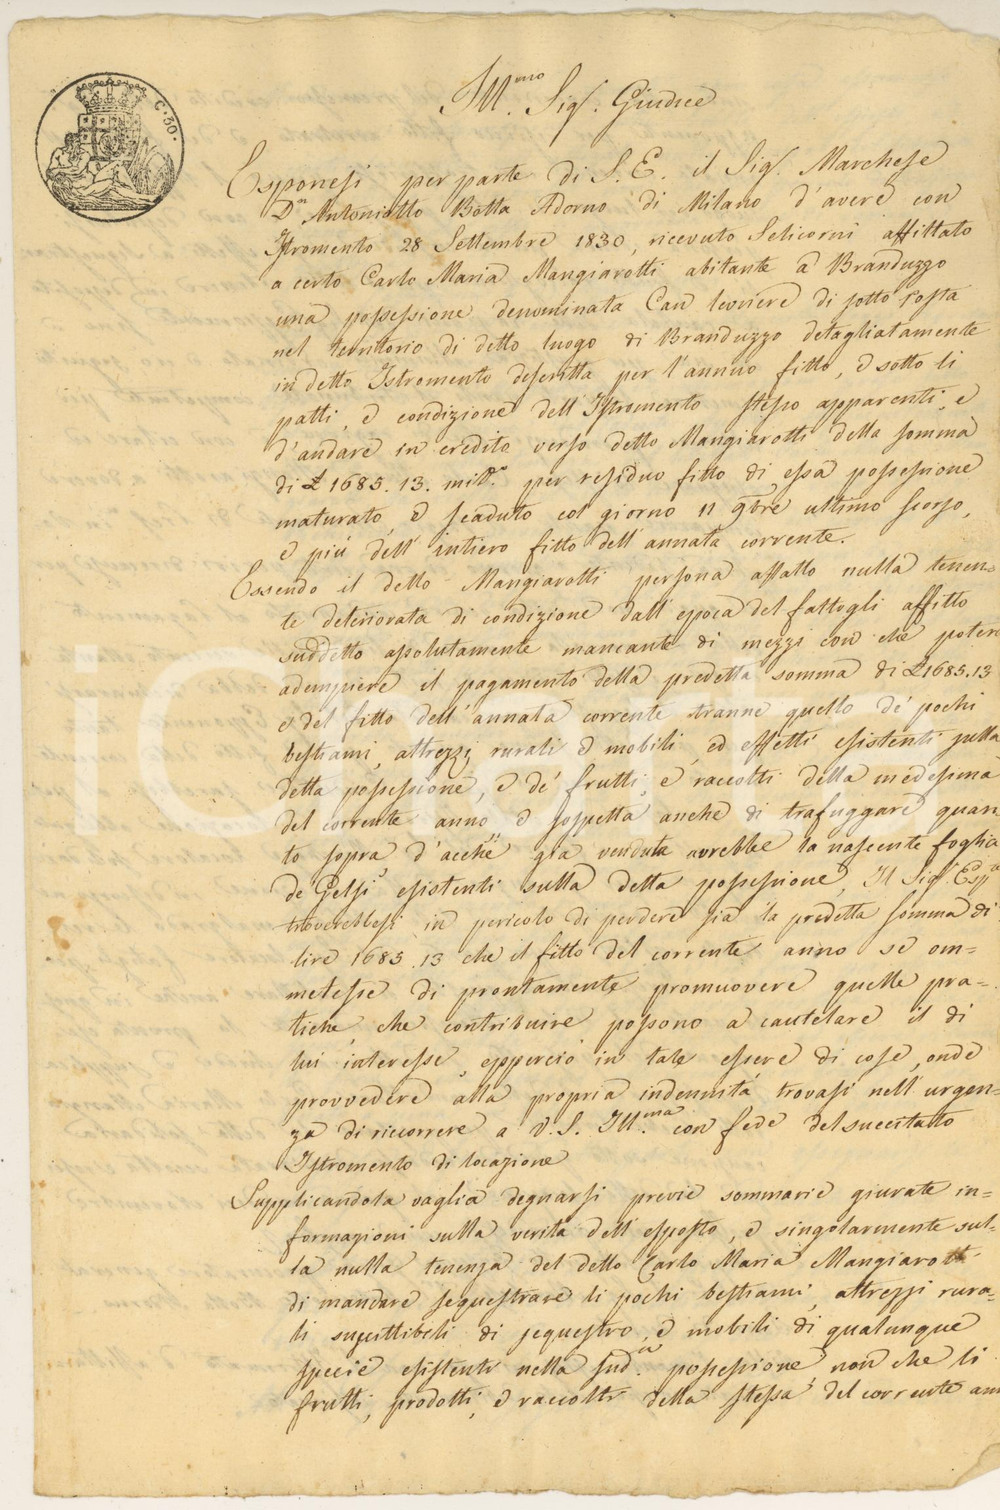 C. 30.
Ill.mo Sig.r Giudice
Esponesi per parte di S. E. il Sig.r Marchese
D.n Antoniotto Botta Adorno di Milano d'avere con
Istromento 28 Settembre 1830, ricevuto Selicorni affittato
a certo Carlo Maria Mangiarotti abitante a Branduzzo
una possessione denominata Can levriere di sotto posta
nel territorio di detto luogo di Branduzzo detagliatamente
in detto Istromento descritta per l'annuo fitto, e sotto li
patti, e condizione dell'Istromento stesso apparenti, e
d'andare in credito verso detto Mangiarotti della somma
di £ 1685. 13. mil.e per residuo fitto di essa possessione
maturato, e scaduto col giorno 11 9bre ultimo scorso,
e più dell'intiero fitto dell'annata corrente.
Essendo il detto Mangiarotti persona affatto nulla tenen=
te deteriorata di condizione dall'epoca del fattogli affitto
suddetto assolutamente mancante di mezzi con che potere
adempiere il pagamento della predetta somma di £ 1685.13
e del fitto dell'annata corrente tranne quello de' pochi
bestiami, attrezzi rurali e mobili, ed effetti esistenti sulla
detta possessione, e de' frutti, e raccolti della medesima
del corrente anno e sospetta anche di trafuggare quan=
to sopra d'acchè già venduta avrebbe la nascente foglia
de Gelsi esistenti sulla detta possessione, Il Sig.r Esp.e
troverebbesi in pericolo di perdere sia la predetta somma di
lire 1685.13 che il fitto del corrente anno se om=
metesse di prontamente promuovere quelle pra=
tiche, che contribuire possono a cautelare il di
lui interesse, epperciò in tale essere di cose, onde
provvedere alla propria indennità trovasi nell'urgen=
za di ricorrere a V. S. Ill.ma con fede del succitato
Istromento di locazione
Supplicandola vaglia degnarsi previe sommarie giurate in=
formazioni sulla verità dell'esposto, e singolarmente sul=
la nulla tenenza del detto Carlo Maria Mangiarotti
di mandare sequestrare li pochi bestiami, attrezzi rura=
li suscittibili di sequestro, e mobili di qualunque
specie esistenti nella sud.a possessione non che li
frutti, prodotti, e raccolti della stessa del corrente ann